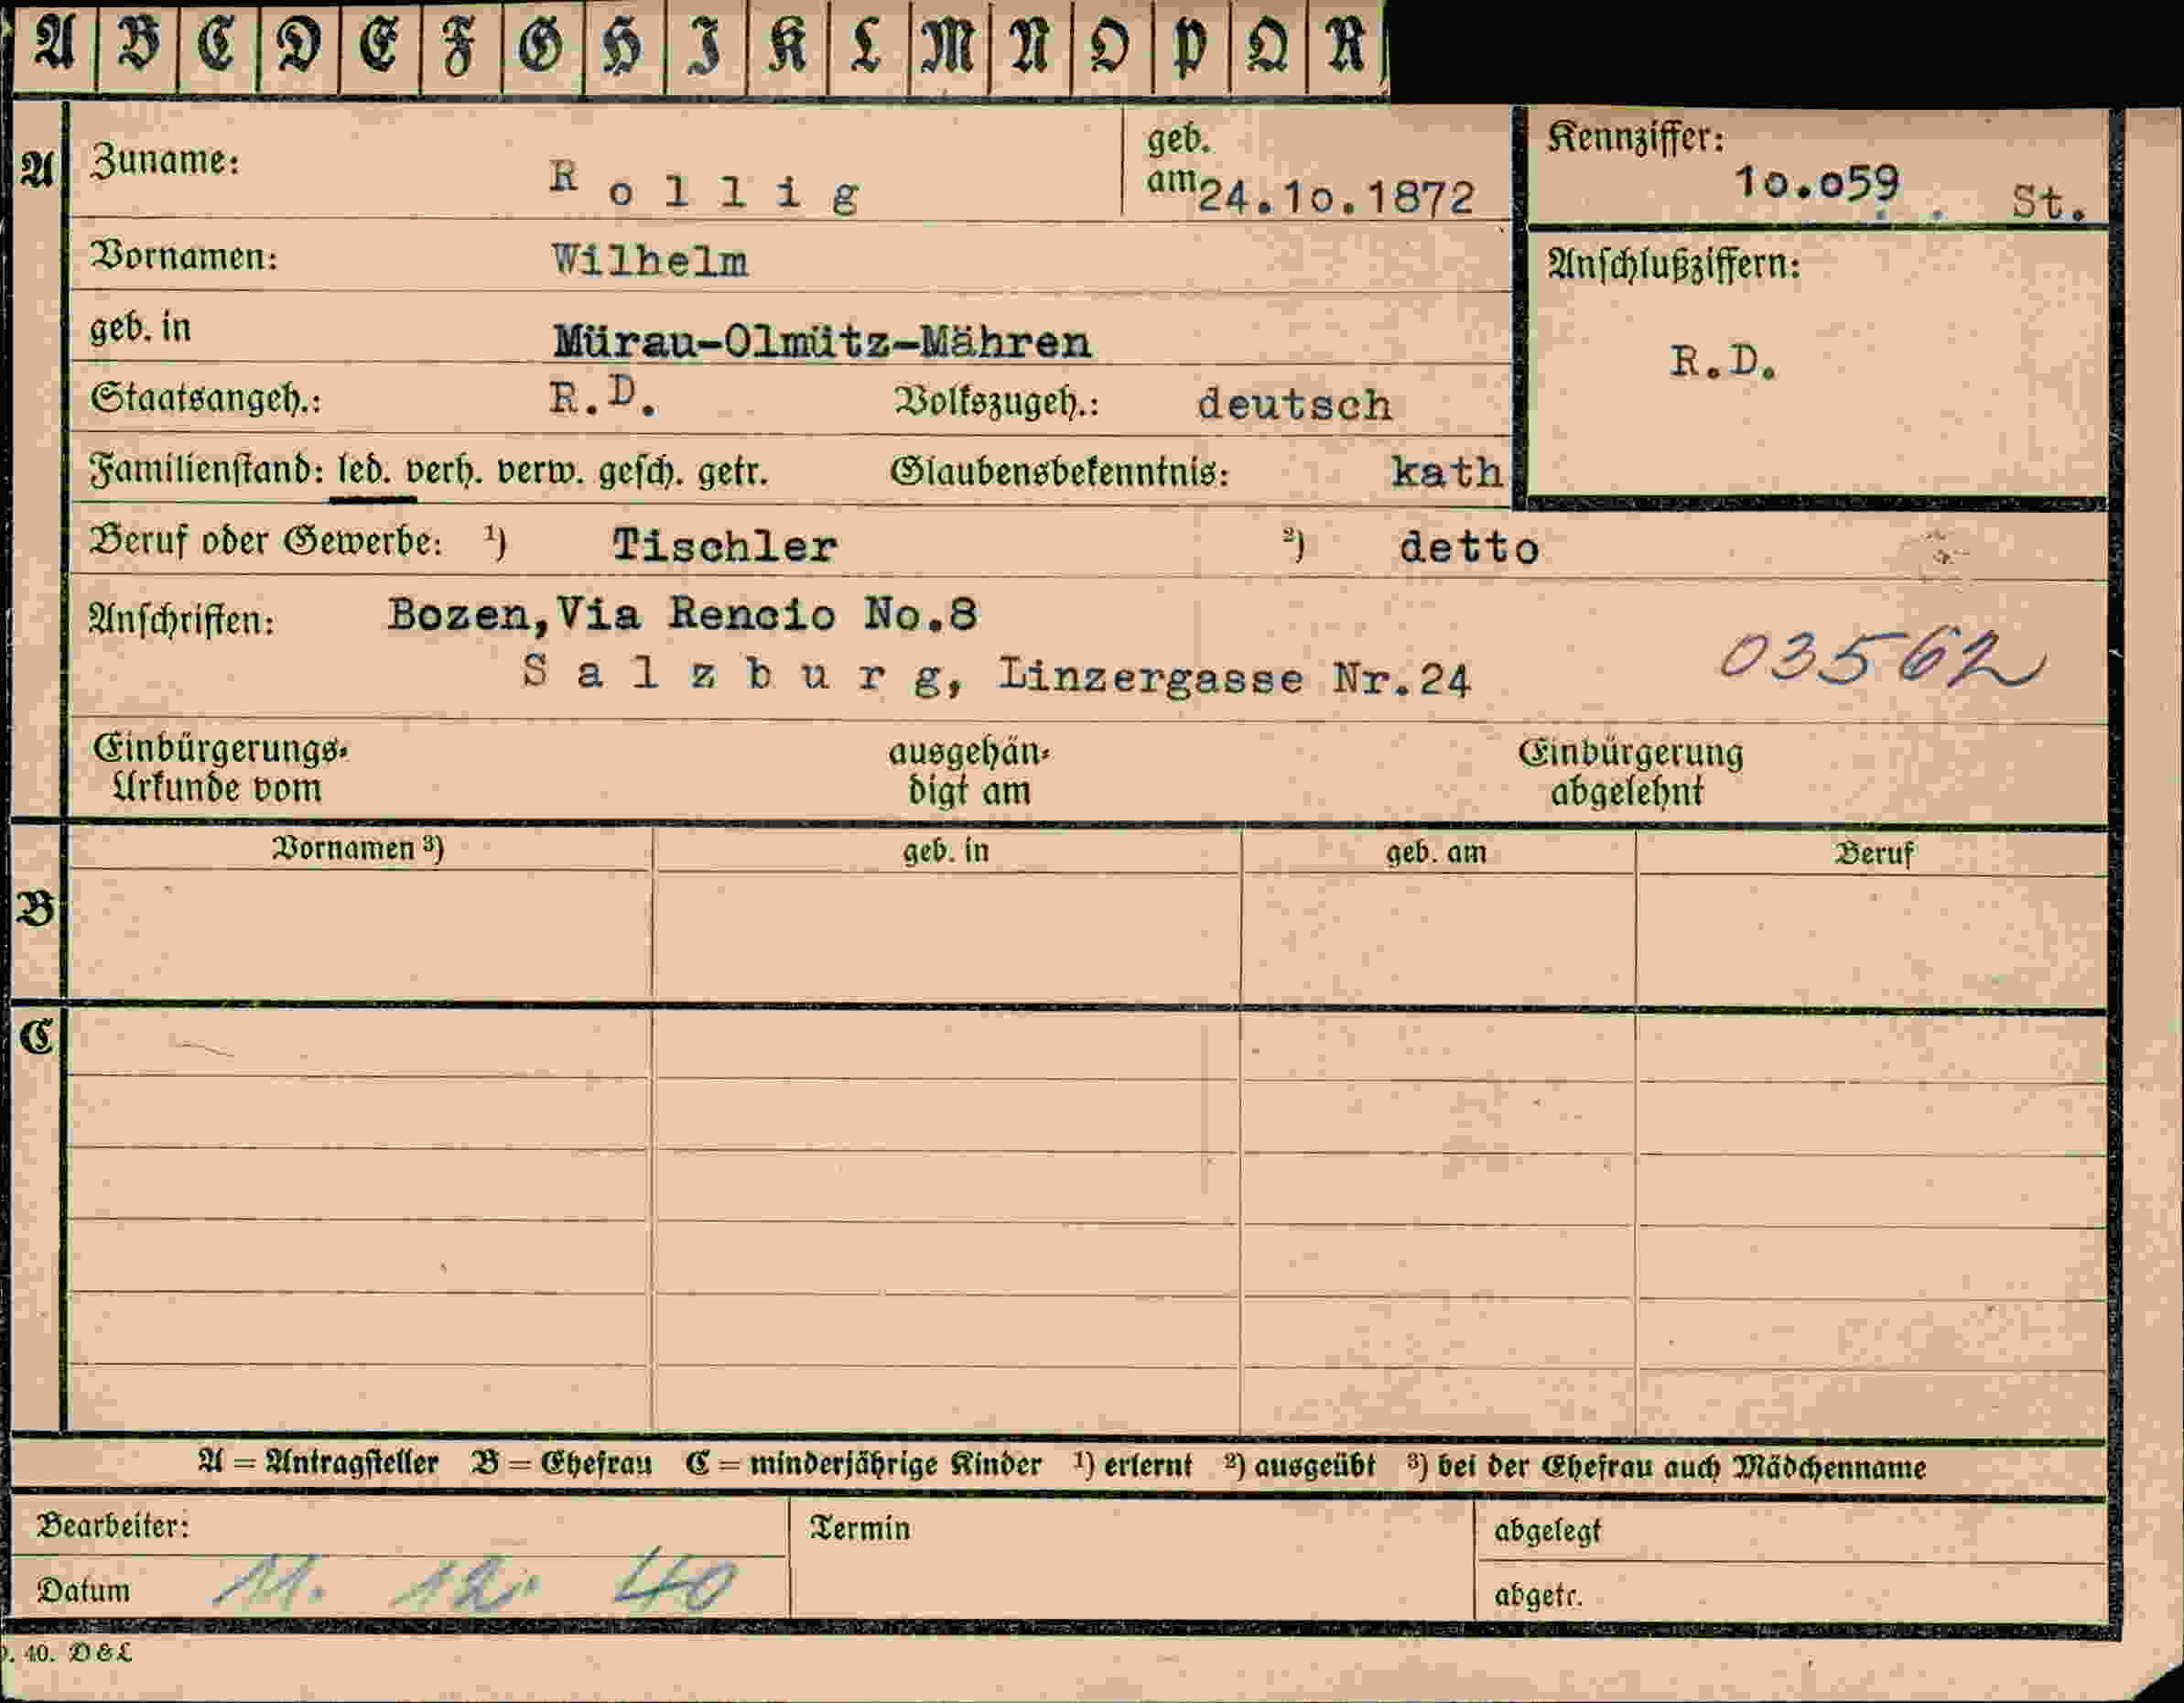 A B C D E F G H I K L M N O P Q R
A
Zuname: Rollig geb. am 24.10.1872
Kennziffer: 10.059 St.
Vornamen: Wilhelm
Anschlußziffern:
geb. in Mürau-Olmütz-Mähren
R.D.
Staatsangeh.: R.D. Volkszugeh.: deutsch
Familienstand: led. verh. verw. gesch. getr. Glaubensbekenntnis: kath
Beruf oder Gewerbe: ¹) Tischler ²) detto
Anschriften: Bozen,Via Rencio No.8
Salzburg, Linzergasse Nr.24 03562
Einbürgerungs- ausgehän- Einbürgerung
Urkunde vom digt am abgelehnt
B
Vornamen ³) geb. in geb. am Beruf
C
A = Antragsteller B = Ehefrau C = minderjährige Kinder ¹) erlernt ²) ausgeübt ³) bei der Ehefrau auch Mädchenname
Bearbeiter: Termin abgelegt
Datum 11. 12. 40 abgetr.
. 40. D&L